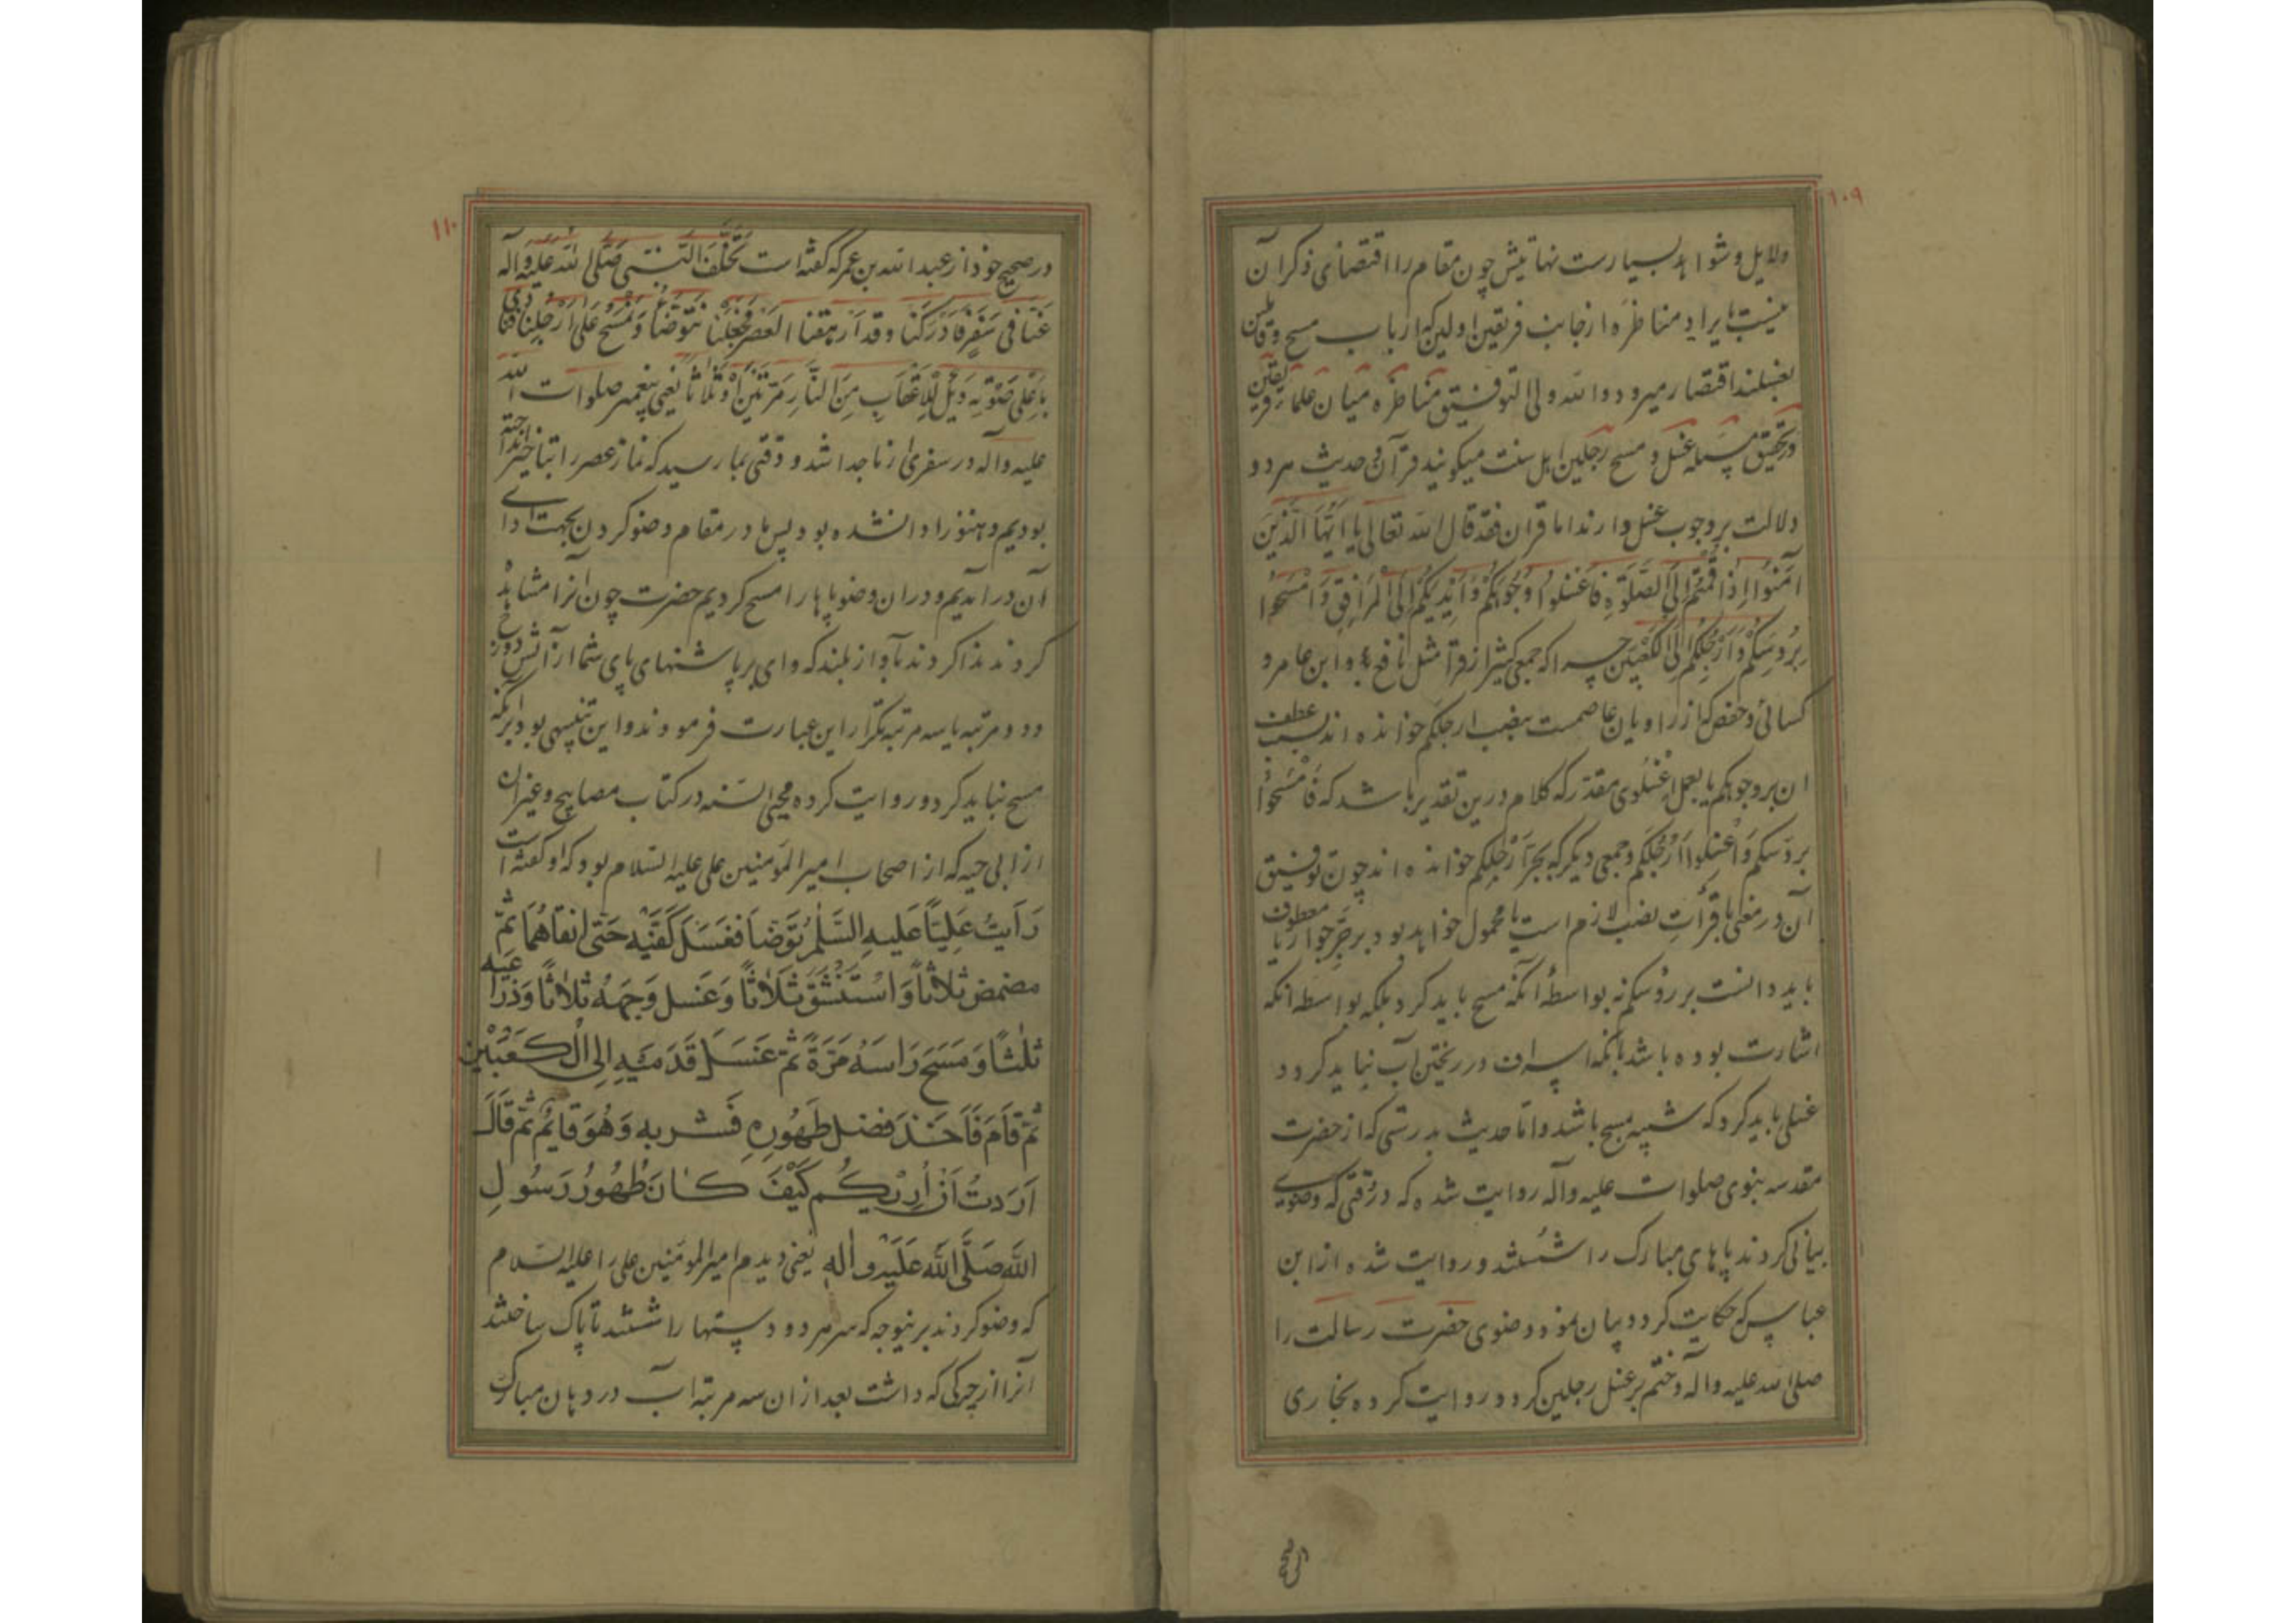 ۱۰۹
دلایل و شواهد بسیارست نهایتش چون مقام را اقتضای ذکر آن
نیست بایراد مناظره از جانب فریقین اولین که ارباب مسح و قایلین
بغسلند اقتصار میرود والله ولی التوفیق مناظره میان علماء فریقین
در تحقیق مسئله غسل و مسح رجلین اهل سنت میگویند قرآن و حدیث هر دو
دلالت بر وجوب غسل دارند اما قران فقد قال الله تعالی یا اَیُّهَا الَّذینَ
امَنُوا اِذا قُمْتُمْ اِلَی الصَّلٰوةِ فَاغْسِلُوا وُجُوهَکُمْ وَاَیْدِیَکُمْ اِلَی الْمَرافِقِ وَامْسَحُوا
بِرُءُوسِکُمْ وَاَرْجُلَکُمْ اِلَی الْکَعْبَیْنِ چرا که جمعی کثیر از قرآ مثل نافع و ابن عامر و
کسائی و حفص که از راویان عاصمست بنصب ارجلکم خوانده اند بسبب عطف
ان بر وجوهکم یا بعمل اغسلوی مقدر که کلام درین تقدیر باشد که فَامْسَحُوا
برؤسکم وَاغْسِلُوا اَرْجُلَکُم و جمعی دیگر که بجر اَرْجُلِکم خوانده اند چون توفیق
آن در معنی با قرأت نصب لازم است یا محمول خواهد بود بر جَرِّ جوار یا معطوف
باید دانست بر رؤسکم نه بواسطۀ آنکه مسح باید کرد بلکه بواسطه انکه
اشارت بوده باشد بانکه اسراف در ریختن آب نباید کرد و
غسلی باید کرد که شبیه بمسح باشد و اما حدیث بدرستی که از حضرت
مقدسه نبوی صلوات علیه وآله روایت شده که در وقتی که وضوی
بیانی کردند پاهای مبارک را شستند و روایت شده از ابن
عباس که حکایت کرد و بیان نمود وضوی حضرت رسالت را
صلی الله علیه وآله و ختم بر غسل رجلین کرد و روایت کرده بخاری
۱۱۰
در صحیح خود از عبدالله بن عمر که گفته است تَخَلَّفَ النَّبی صَلَّی الله عَلَیْهِ وَآله
عَنّا فی سَفَرٍ فَاَدْرَکَنا وقد اَرْهَقَنا العَصْر فَجَعَلْنا نَتَوَضَّأُ وَنَمْسَحُ عَلی اَرْجُلِنا فَنادی
بِاَعْلی صَوْتِه وَیْلٌ لِلْاَعْقابِ مِنَ النّارِ مَرَّتَیْنِ اَوْ ثَلاثًا یعنی پیغمبر صلوات الله
علیه وآله در سفری از ما جدا شد و وقتی بما رسید که نماز عصر را بتاخیر انداخته
بودیم و هنوز ادا نشده بود پس ما در مقام وضو کردن بجهت ادای
آن در آمدیم و در ان وضو پاها را مسح کردیم حضرت چون آنرا مشاهده
کردند ندا کردند بآواز بلند که وای بر پاشنهای پای شما از آتش دوزخ
و دو مرتبه یا سه مرتبه تکرار این عبارت فرمودند و این تنبیهی بود بر انکه
مسح نباید کرد و روایت کرده محیی السّنه در کتاب مصابیح و غیر ان
از ابی حیه که از اصحاب امیر المؤمنین علی علیه السّلام بود که او گفته است
رَاَیتُ عَلِیّاً عَلیهِ السَّلٰم تَوَضأ فَغَسَلَ کَفَّیْهِ حَتی انقاهُمَا ثُمَّ
مضمض ثلاثاً وَاسْتَنْشَقَ ثَلاثاً وَغَسل وَجهَهُ ثلاثا وَذِراعیه
ثلٰثاً وَمَسَحَ رَاسَهُ مَرَّةً ثمّ غَسَلَ قَدَمَیهِ اِلی الْکَعْبَیْنِ
ثمّ قامَ فَاَخَذَ فضل طَهُورِهِ فَشربه وَهُوَ قایمٌ ثمّ قَالَ
اَرَدتُ اَنْ اُرِیَکُم کَیْفَ کانَ طُهُورُ رَسُولِ
اللهِ صَلَّی الله عَلَیْه وآله یعنی دیدم امیر المؤمنین علی را علیه السّلام
که وضو کردند برینوجه که سر هر دو دستها را شستند تا پاک ساختند
آنرا از چرکی که داشت بعد از ان سه مرتبه آب در دهان مبارک